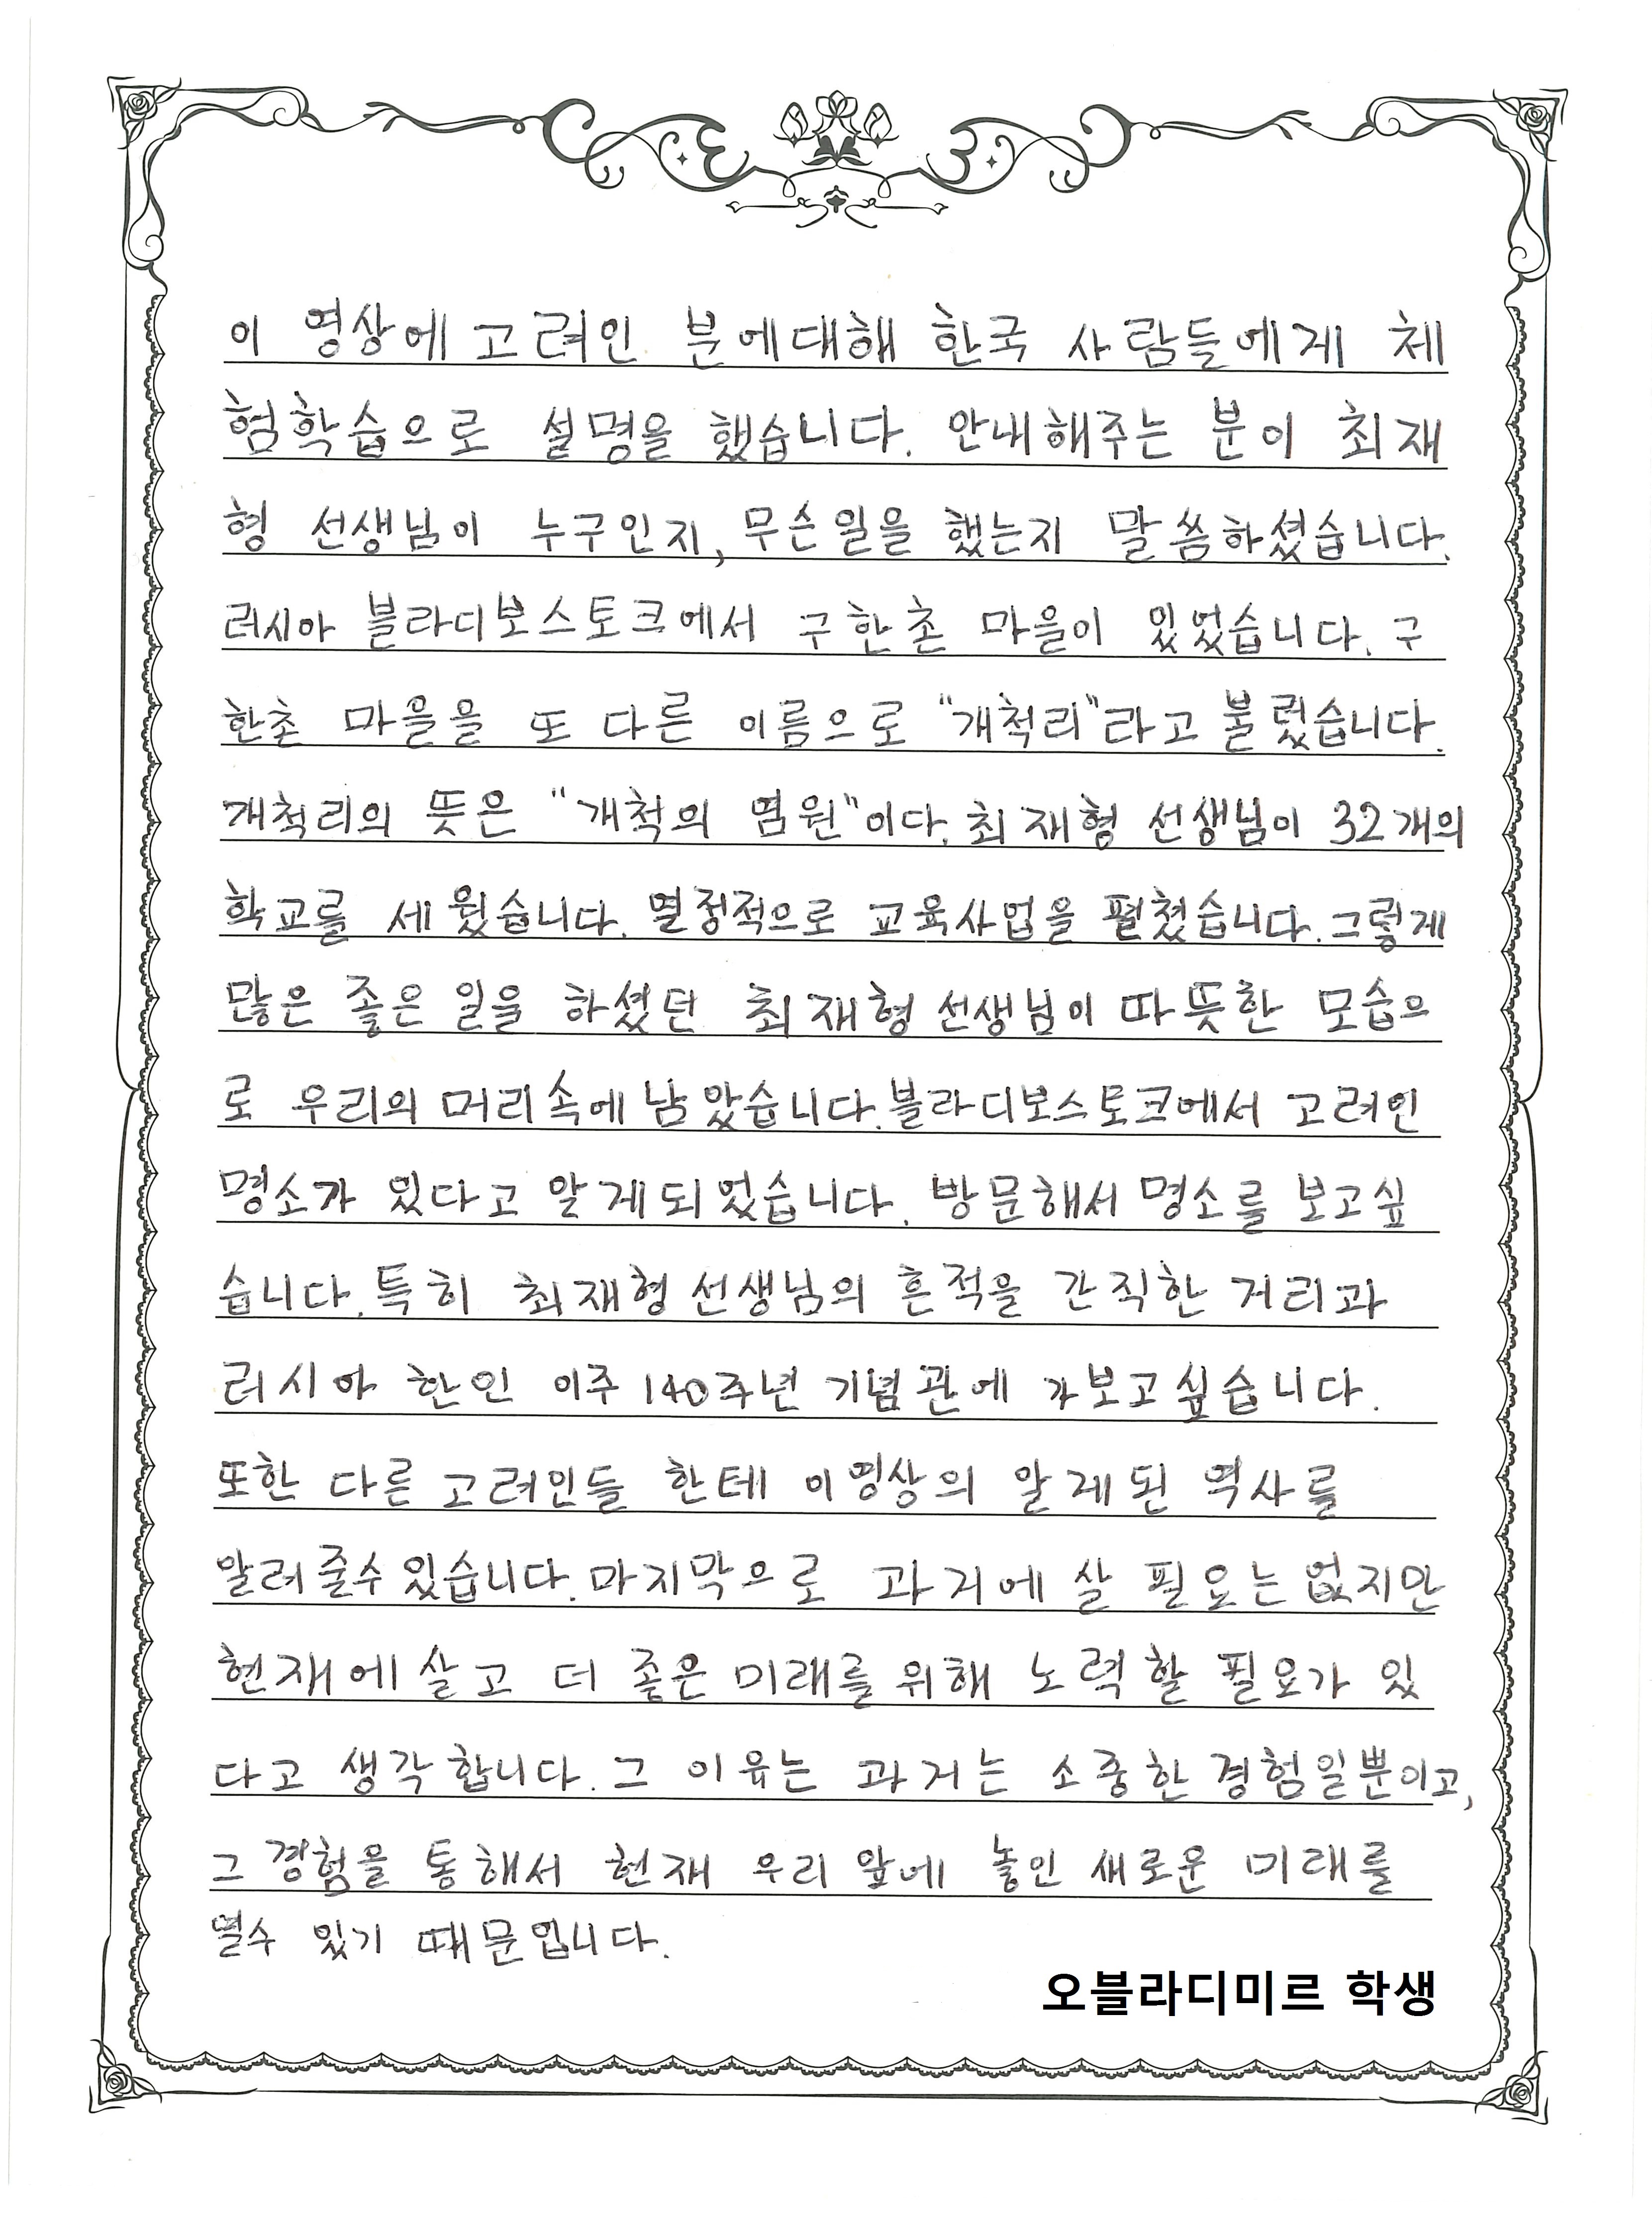 이 영상에 고려인 분에대해 한국 사람들에게 체
험학습으로 설명을 했습니다. 안내해주는 분이 최재
형 선생님이 누구인지, 무슨일을 했는지 말씀하셨습니다.
러시아 블라디보스토크에서 구한촌 마을이 있었습니다. 구
한촌 마을을 또 다른 이름으로 "개척리"라고 불렀습니다.
개척리의 뜻은 "개척의 염원"이다. 최재형 선생님이 32개의
학교를 세웠습니다. 열정적으로 교육사업을 펼쳤습니다. 그렇게
많은 좋은 일을 하셨던 최재형 선생님이 따뜻한 모습으
로 우리의 머리속에 남았습니다. 블라디보스토크에서 고려인
명소가 있다고 알게되었습니다. 방문해서 명소를 보고싶
습니다. 특히 최재형 선생님의 흔적을 간직한 거리과
러시아 한인 이주 140주년 기념관에 가보고싶습니다.
또한 다른 고려인들 한테 이영상의 알게된 역사를
알려줄수있습니다. 마지막으로 과거에 살 필요는 없지만
현재에 살고 더 좋은 미래를 위해 노력할 필요가 있
다고 생각합니다. 그 이유는 과거는 소중한 경험일뿐이고,
그 경험을 통해서 현재 우리 앞에 놓인 새로운 미래를
열수 있기 때문입니다.
오블라디미르 학생